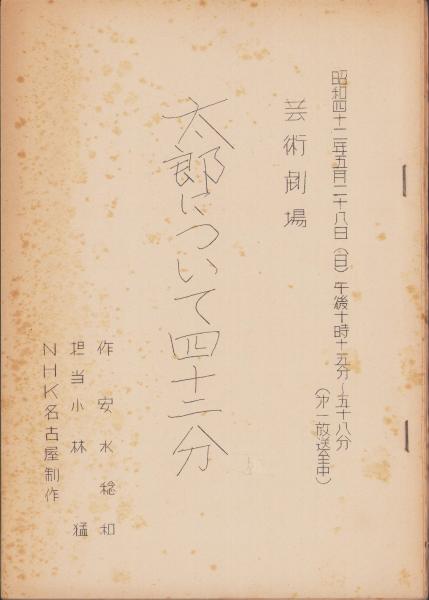 昭和四十二年五月二十八日（日）午後十時十五分～五十八分
（オ一放送全中）
芸術劇場
太郎について四十二分
作　安水稔和
担当　小林　猛
NHK名古屋制作